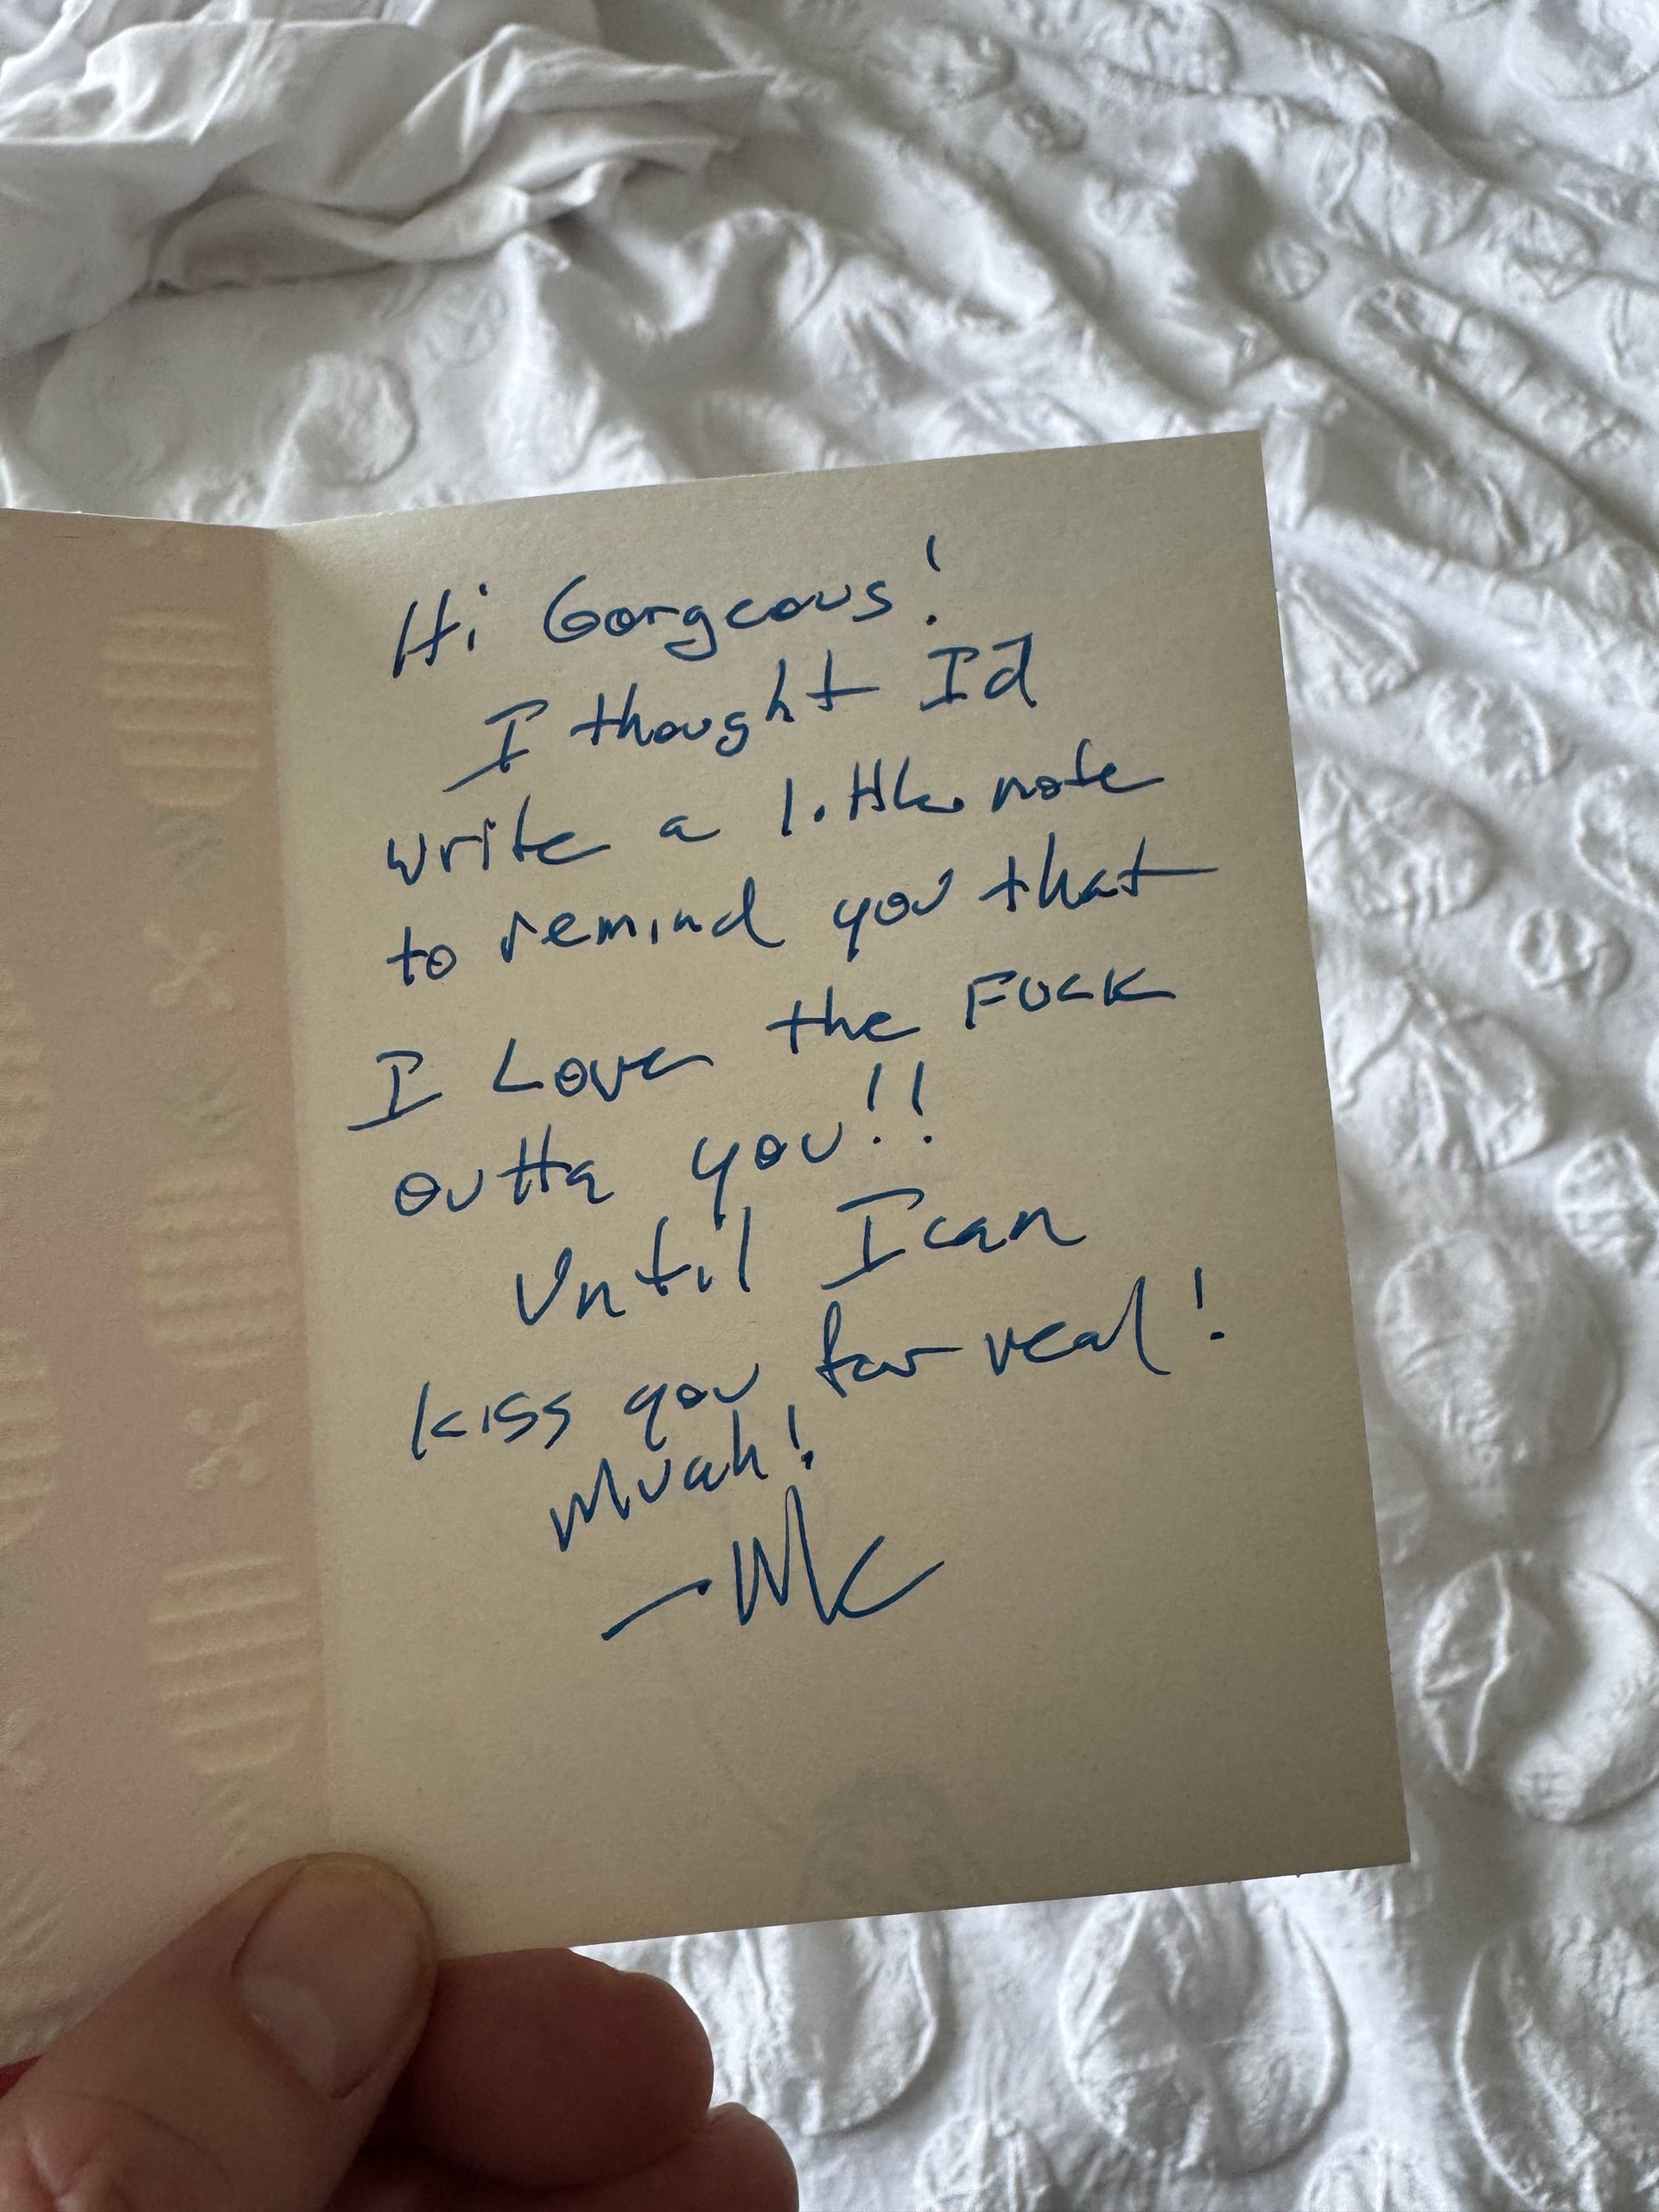 Hi Gorgeous!
I thought I'd
write a little note
to remind you that
I Love the FUCK
outta you!!
Until I can
kiss you for real!
Muah!